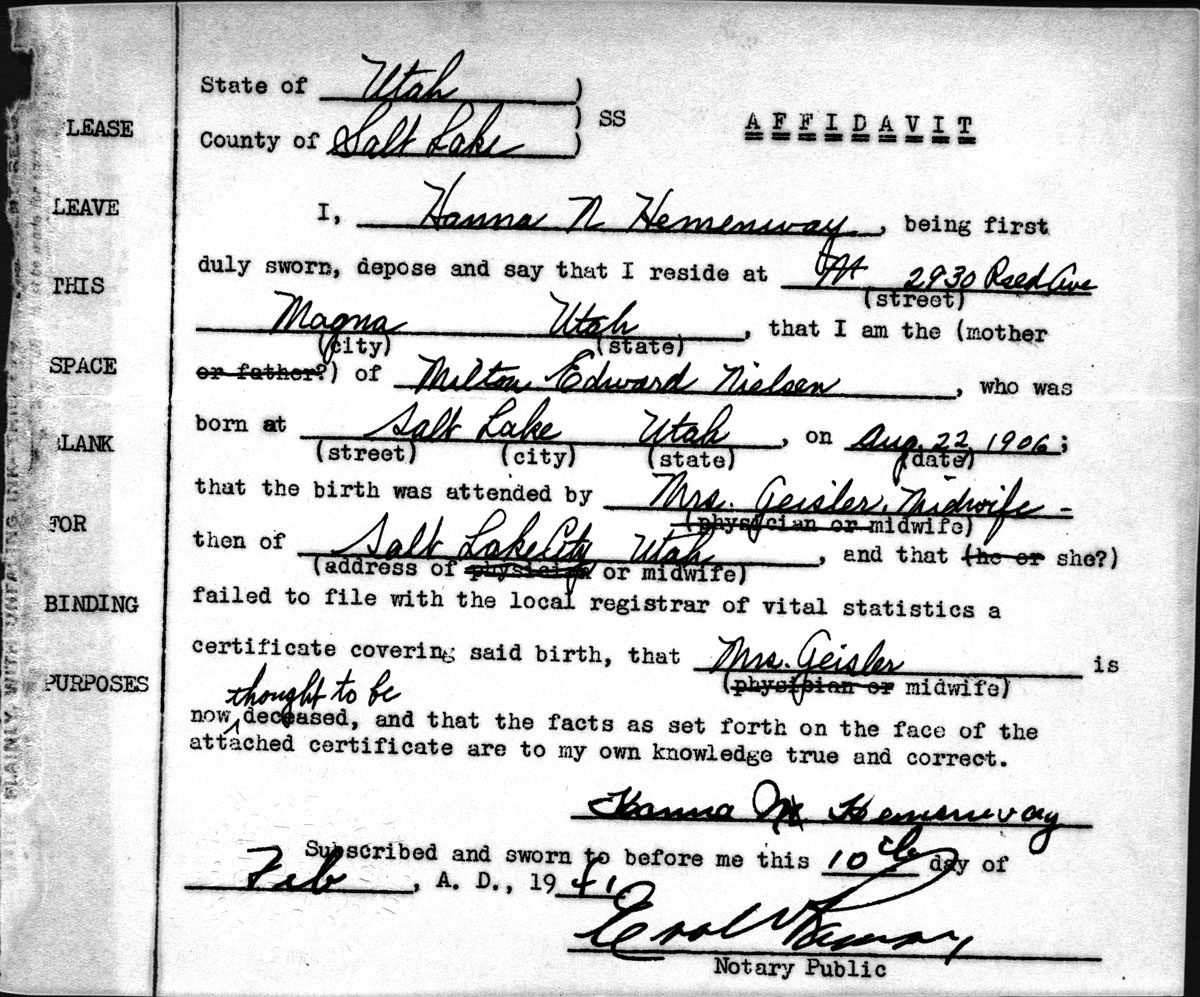 State of Utah )
) SS AFFIDAVIT
County of Salt Lake )
I, Hanna N Hemenway, being first
duly sworn, depose and say that I reside at 2930 Reed Ave
(street)
Magna Utah, that I am the (mother
(city) (state)
or father?) of Milton Edward Nielsen, who was
born at Salt Lake Utah, on Aug. 22, 1906;
(street) (city) (state) (date)
that the birth was attended by Mrs. Geisler, Midwife -
(physician or midwife)
then of Salt Lake City Utah, and that (he or she?)
(address of physician or midwife)
failed to file with the local registrar of vital statistics a
certificate covering said birth, that Mrs. Geisler is
(physician or midwife)
thought to be
now deceased, and that the facts as set forth on the face of the
attached certificate are to my own knowledge true and correct.
Hanna Hemenway
Subscribed and sworn to before me this 10th day of
Feb, A. D., 1941.
Notary Public
PLEASE
LEAVE
THIS
SPACE
BLANK
FOR
BINDING
PURPOSES